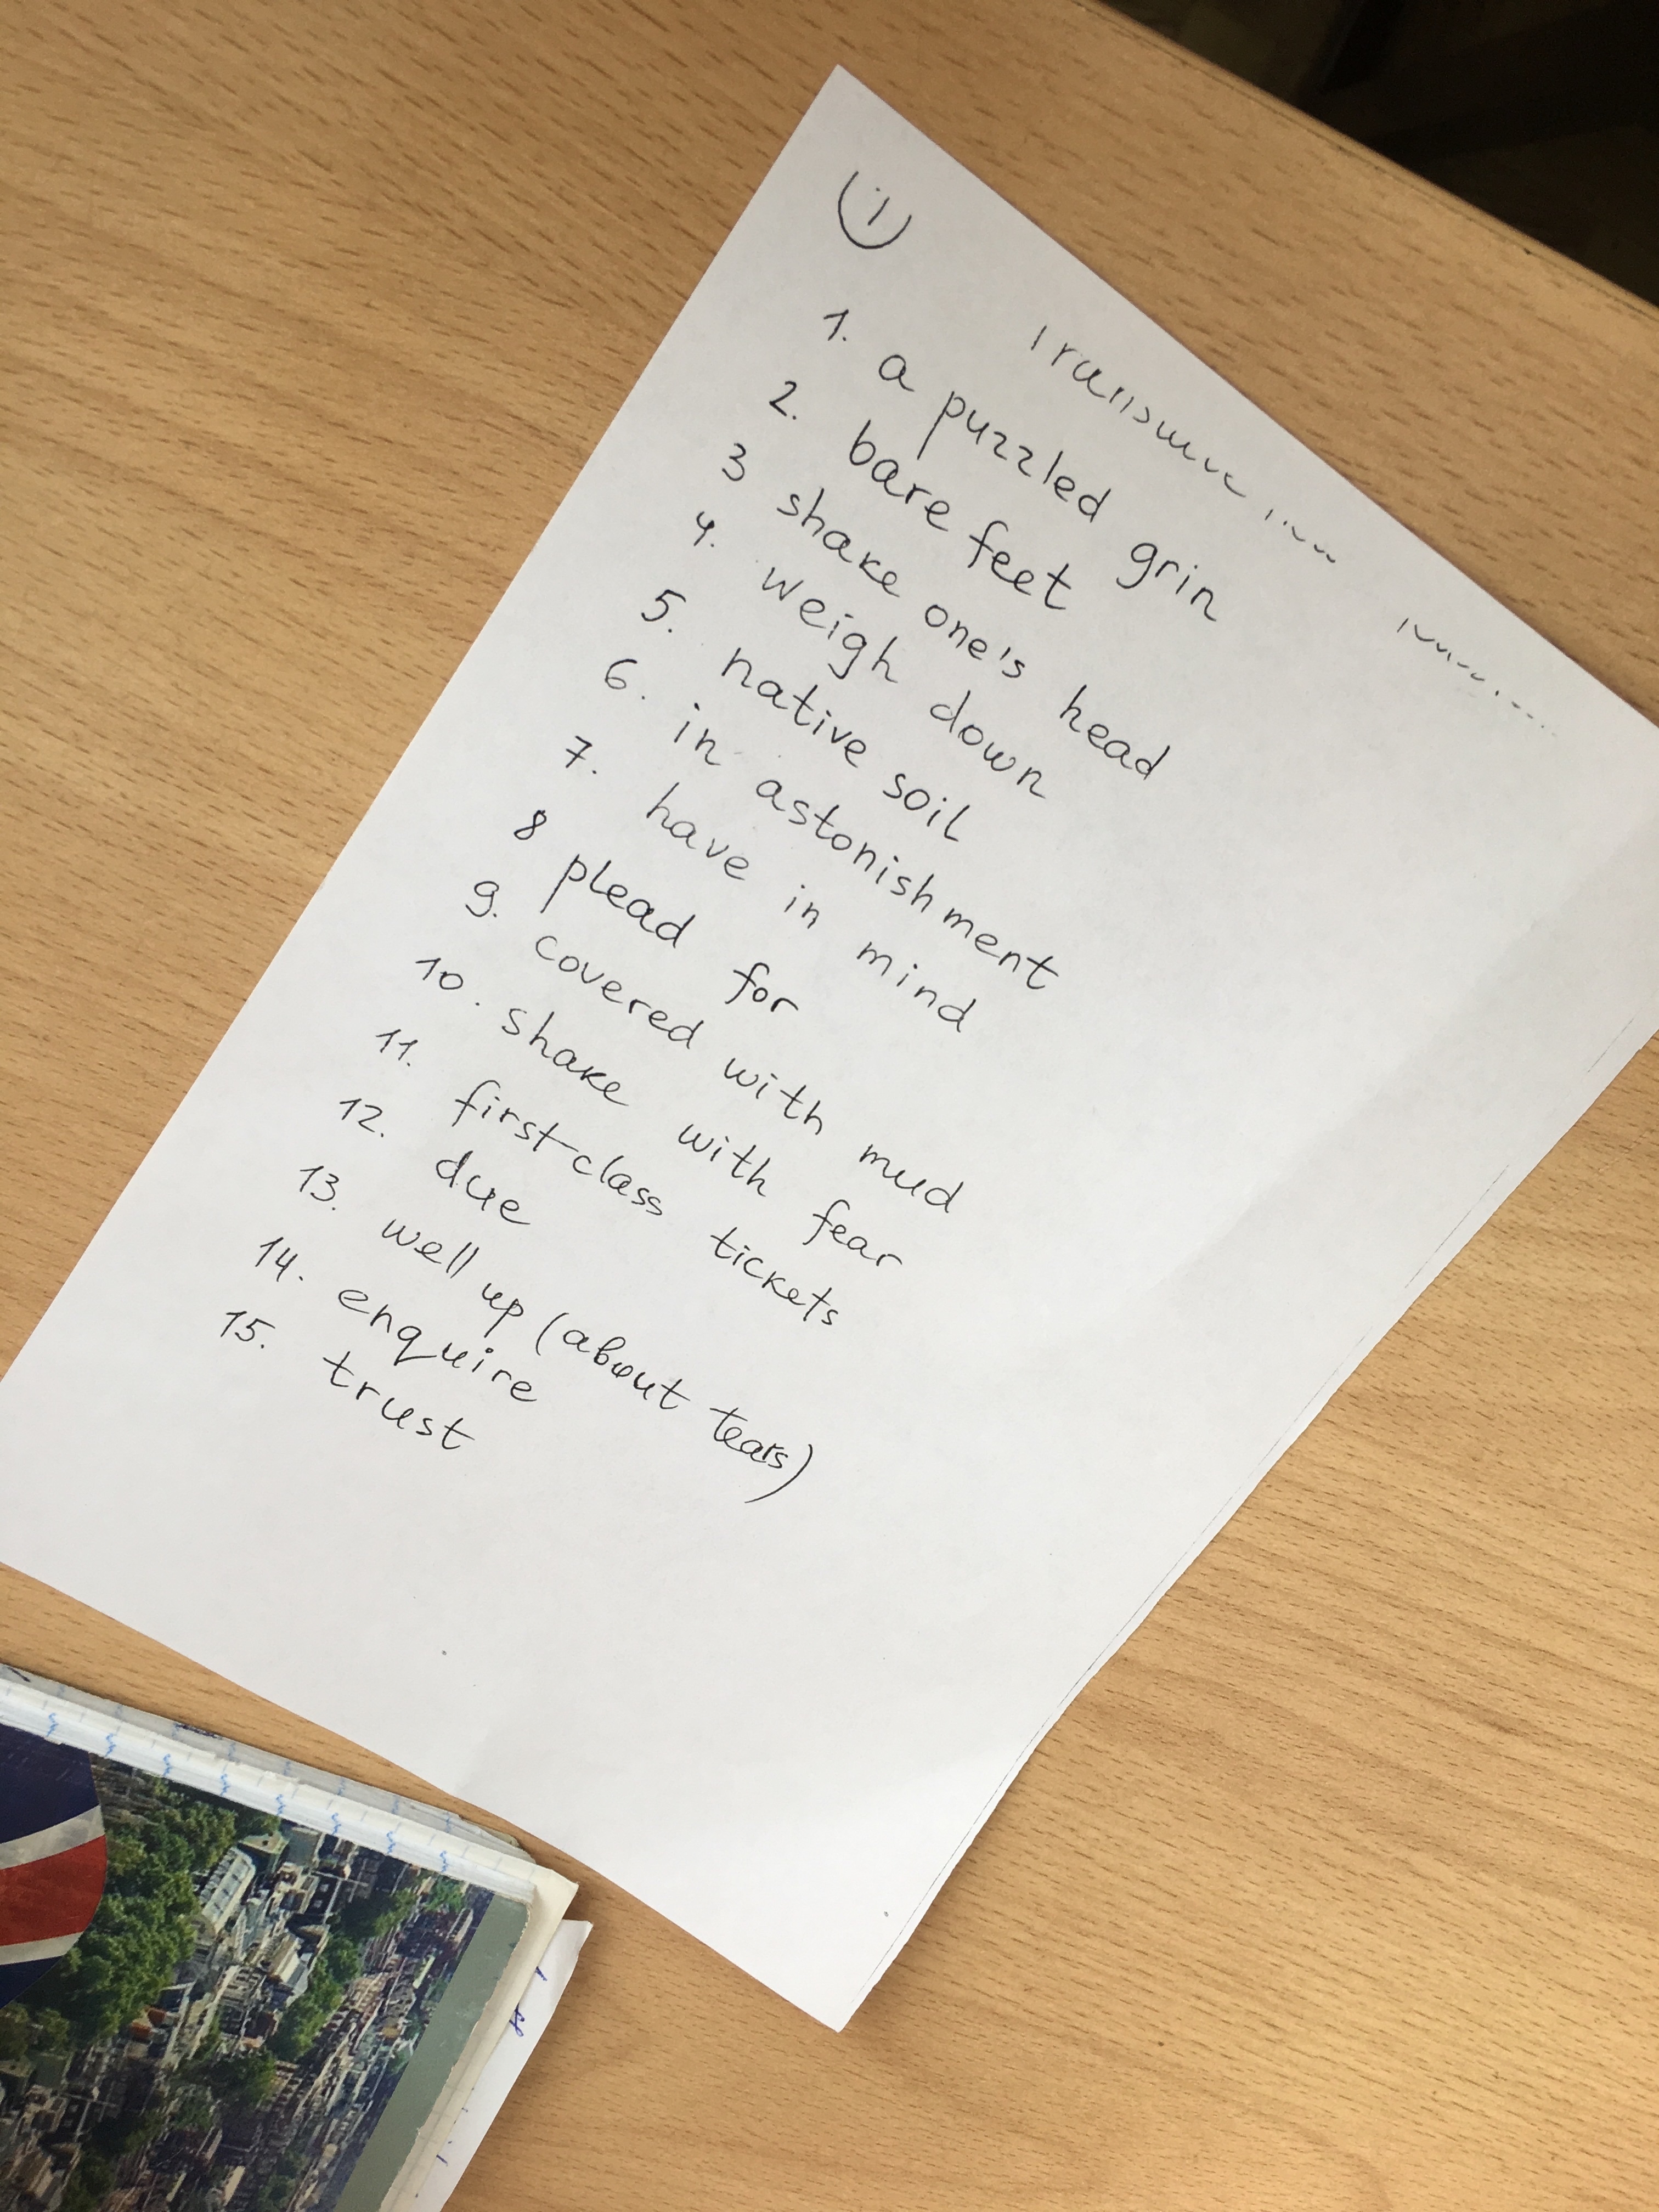 1
1. a puzzled grin
2. bare feet
3 shake one's head
4. weigh down
5. native soil
6. in astonishment
7. have in mind
8 plead for
9. covered with mud
10. shake with fear
11. first-class tickets
12. due
13. well up (about tears)
14. enquire
15. trust